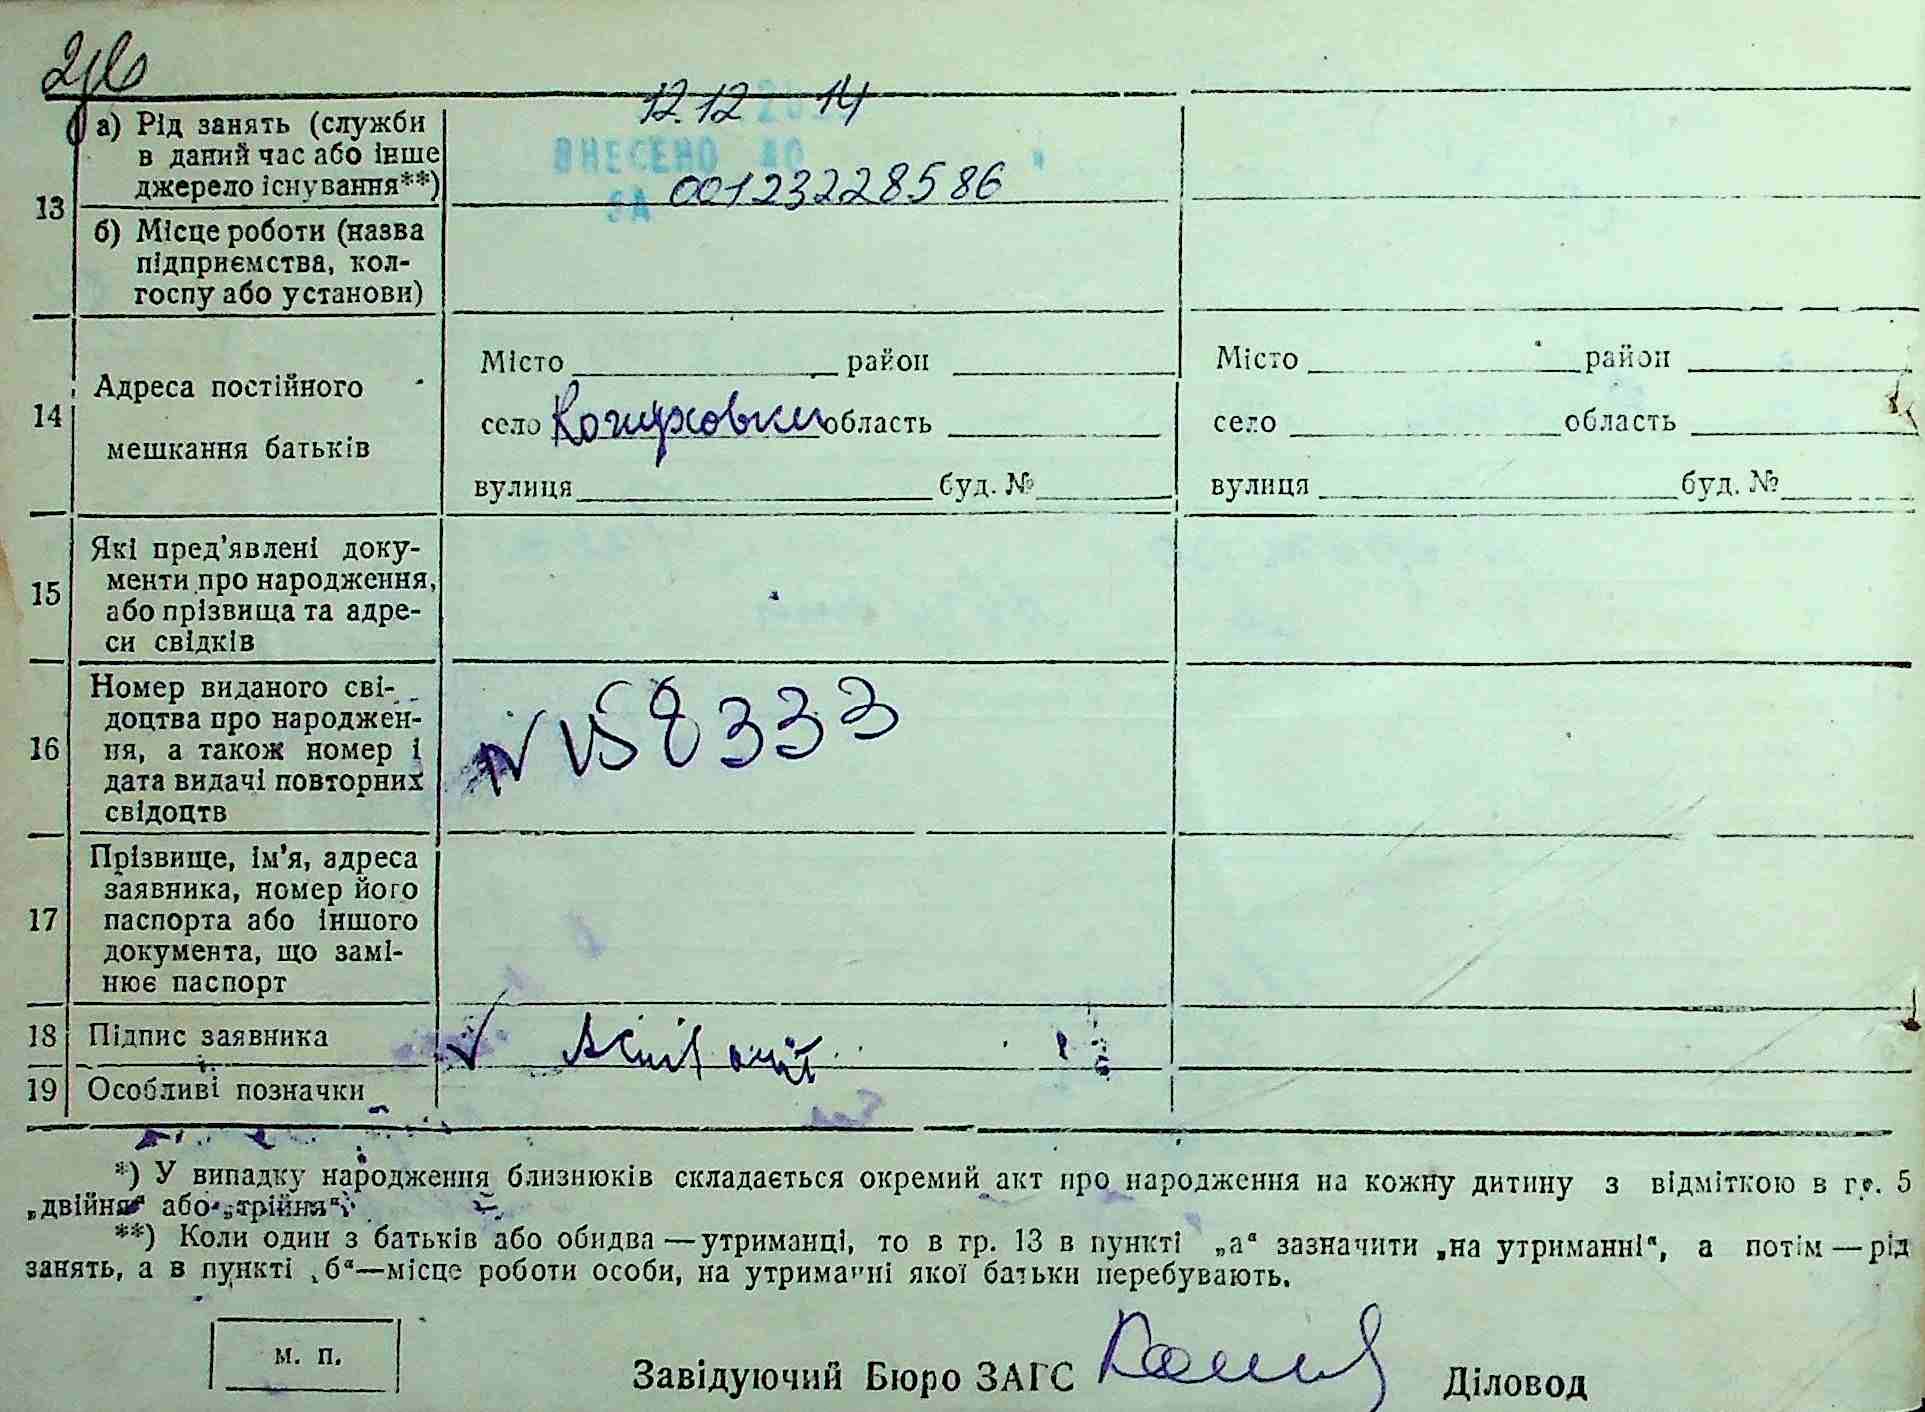 12.12.2014
а) Рід занять (служби
в даний час або інше
джерело існування**)
ВНЕСЕНО ДО
ЗА 001232228586
13
б) Місце роботи (назва
підприємства, кол-
госпу або установи)
14
Адреса постійного
мешкання батьків
Місто район
село область
вулиця буд. №
Місто район
село область
вулиця буд. №
15
Які пред’явлені доку-
менти про народження,
або прізвища та адре-
си свідків
16
Номер виданого сві-
доцтва про народжен-
ня, а також номер і
дата видачі повторних
свідоцтв
N 158333
17
Прізвище, ім’я, адреса
заявника, номер його
паспорта або іншого
документа, що замі-
нює паспорт
18 Підпис заявника
19 Особливі позначки
*) У випадку народження близнюків складається окремий акт про народження на кожну дитину з відміткою в гр. 5
„двійня“ або „трійня“.
**) Коли один з батьків або обидва — утриманці, то в гр. 13 в пункті „а“ зазначити „на утриманні“, а потім — рід
занять, а в пункті „б“—місце роботи особи, на утриманні якої батьки перебувають.
м. п.
Завідуючий Бюро ЗАГС Діловод